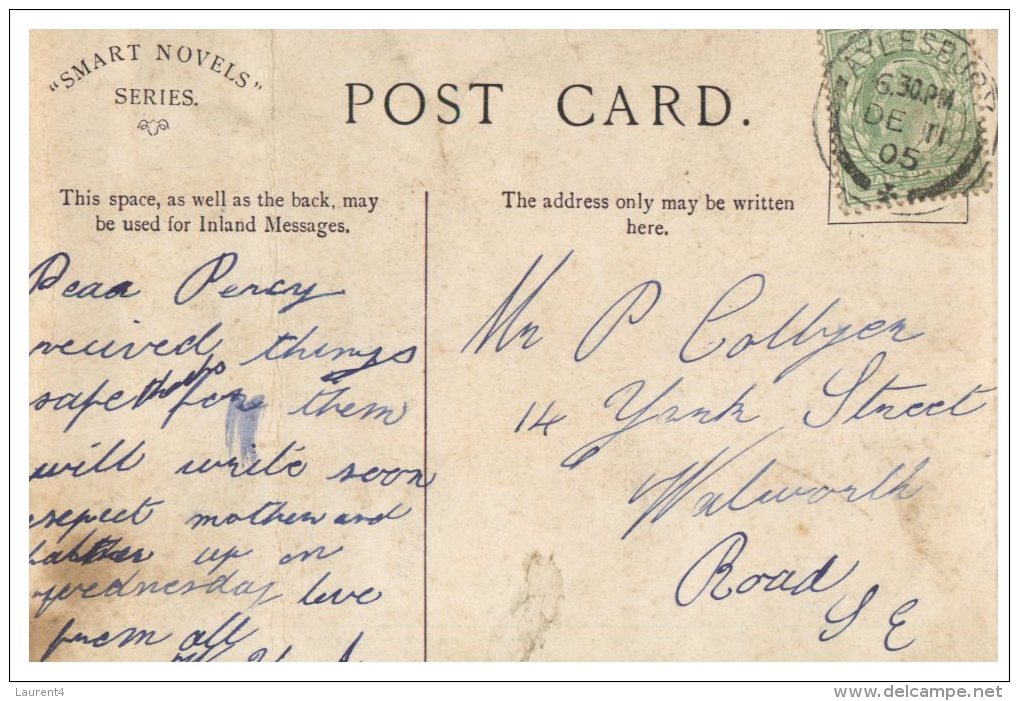 "SMART NOVELS"
SERIES.
POST CARD.
AYLESBURY
6.30 PM
DE 11
05
This space, as well as the back, may
be used for Inland Messages.
The address only may be written
here.
Dear Percy
reeived things
safe thanks for them
will write soon
expect mother and
father up on
Wednesday love
from all
Mr P Collyer
14 York Street
Walworth
Road
S E
Laurent4
delcampe.net